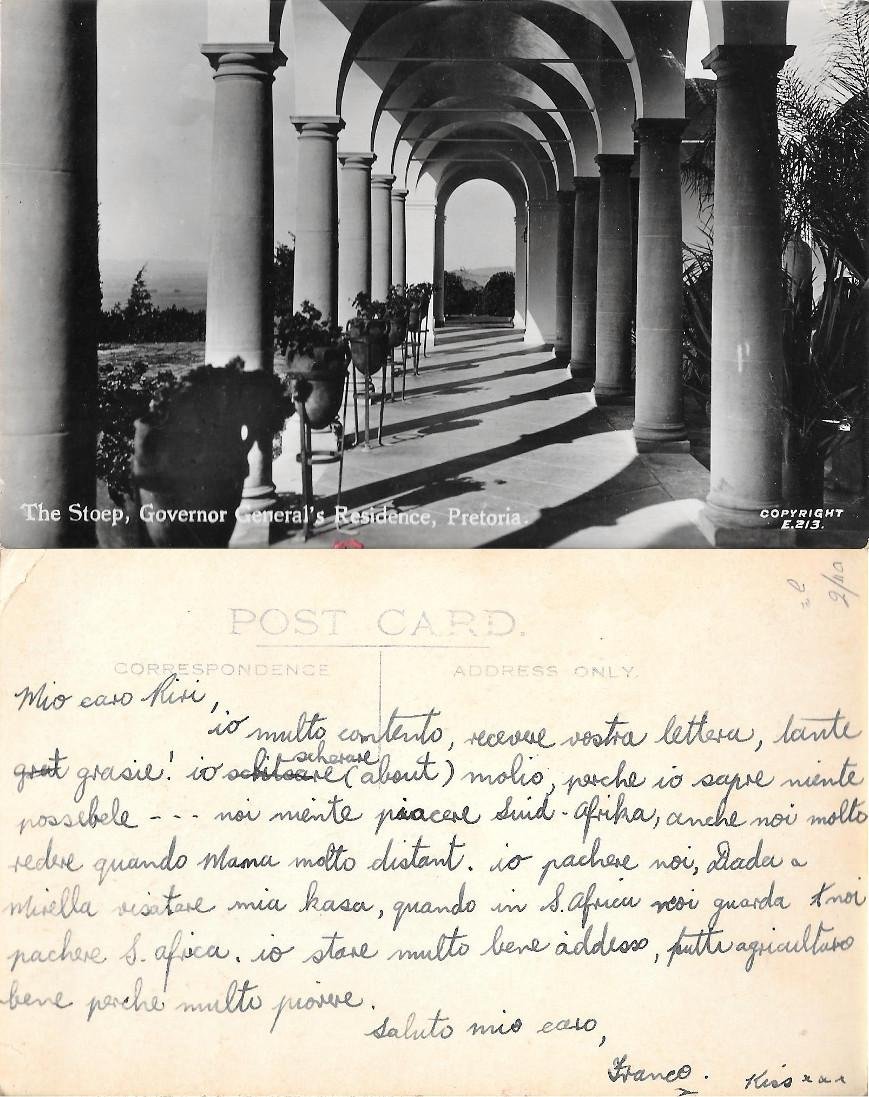 The Stoep, Governor General's Residence, Pretoria.
COPYRIGHT
E.213.
POST CARD.
CORRESPONDENCE
ADDRESS ONLY.
Mio caro Kiri,
io multo contento, recevere vostra lettera, tante
grat grasie! io scherare (about) molio, perche io sapre niente
possebele --- noi niente piacere Suid-Afrika, anche noi molto
redere quando Mama molto distant. io pachere noi, Dada a
Mirella visatare mia kasa, quando in S. Africa noi guarda & noi
pachere S. africa. io stare multo bene addesso, tutti agriculturo
bene perche multo piovere.
Saluto mio caro,
Franco.
Kiss x x x